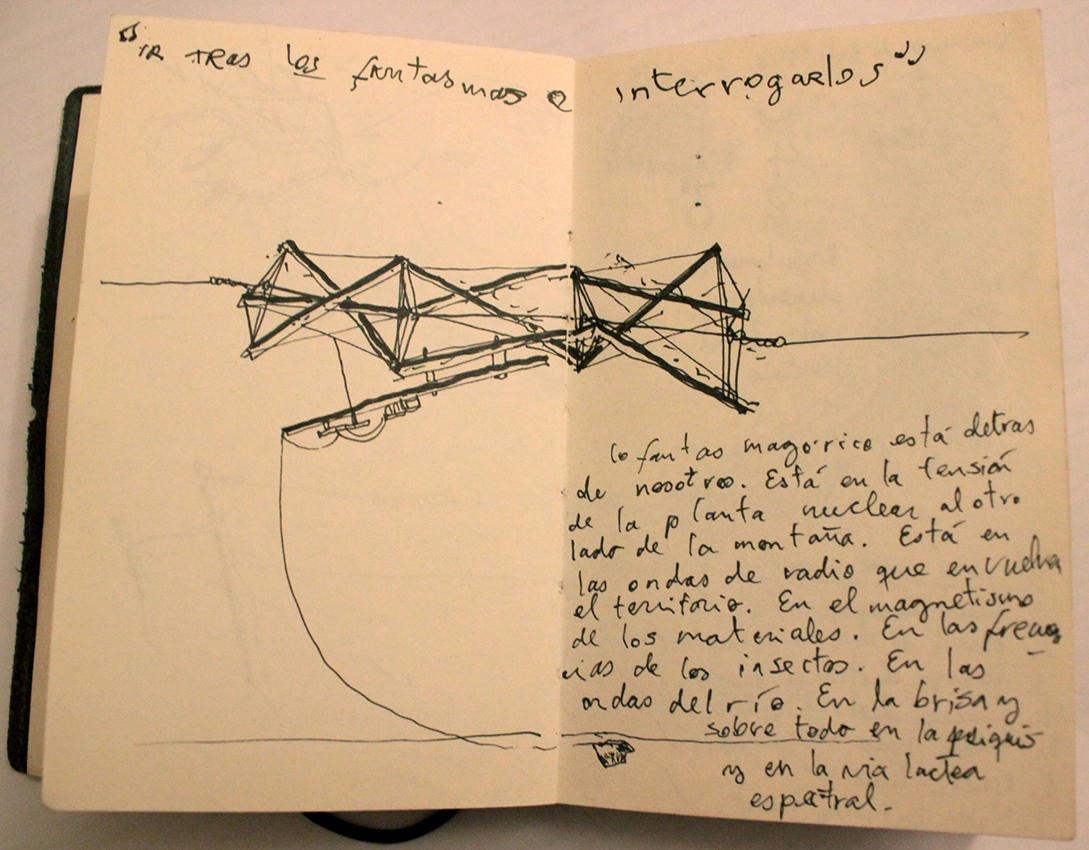 "IR TRAS los fantasmas e interrogarlos"
lo fantasmagórico está detras
de nosotros. Está en la tensión
de la planta nuclear al otro
lado de la montaña. Está en
las ondas de radio que envuelven
el territorio. En el magnetismo
de los materiales. En las frecuen
cias de los insectos. En las
ondas del río. En la brisa y
sobre todo en la psiquis
y en la via lactea
espectral.